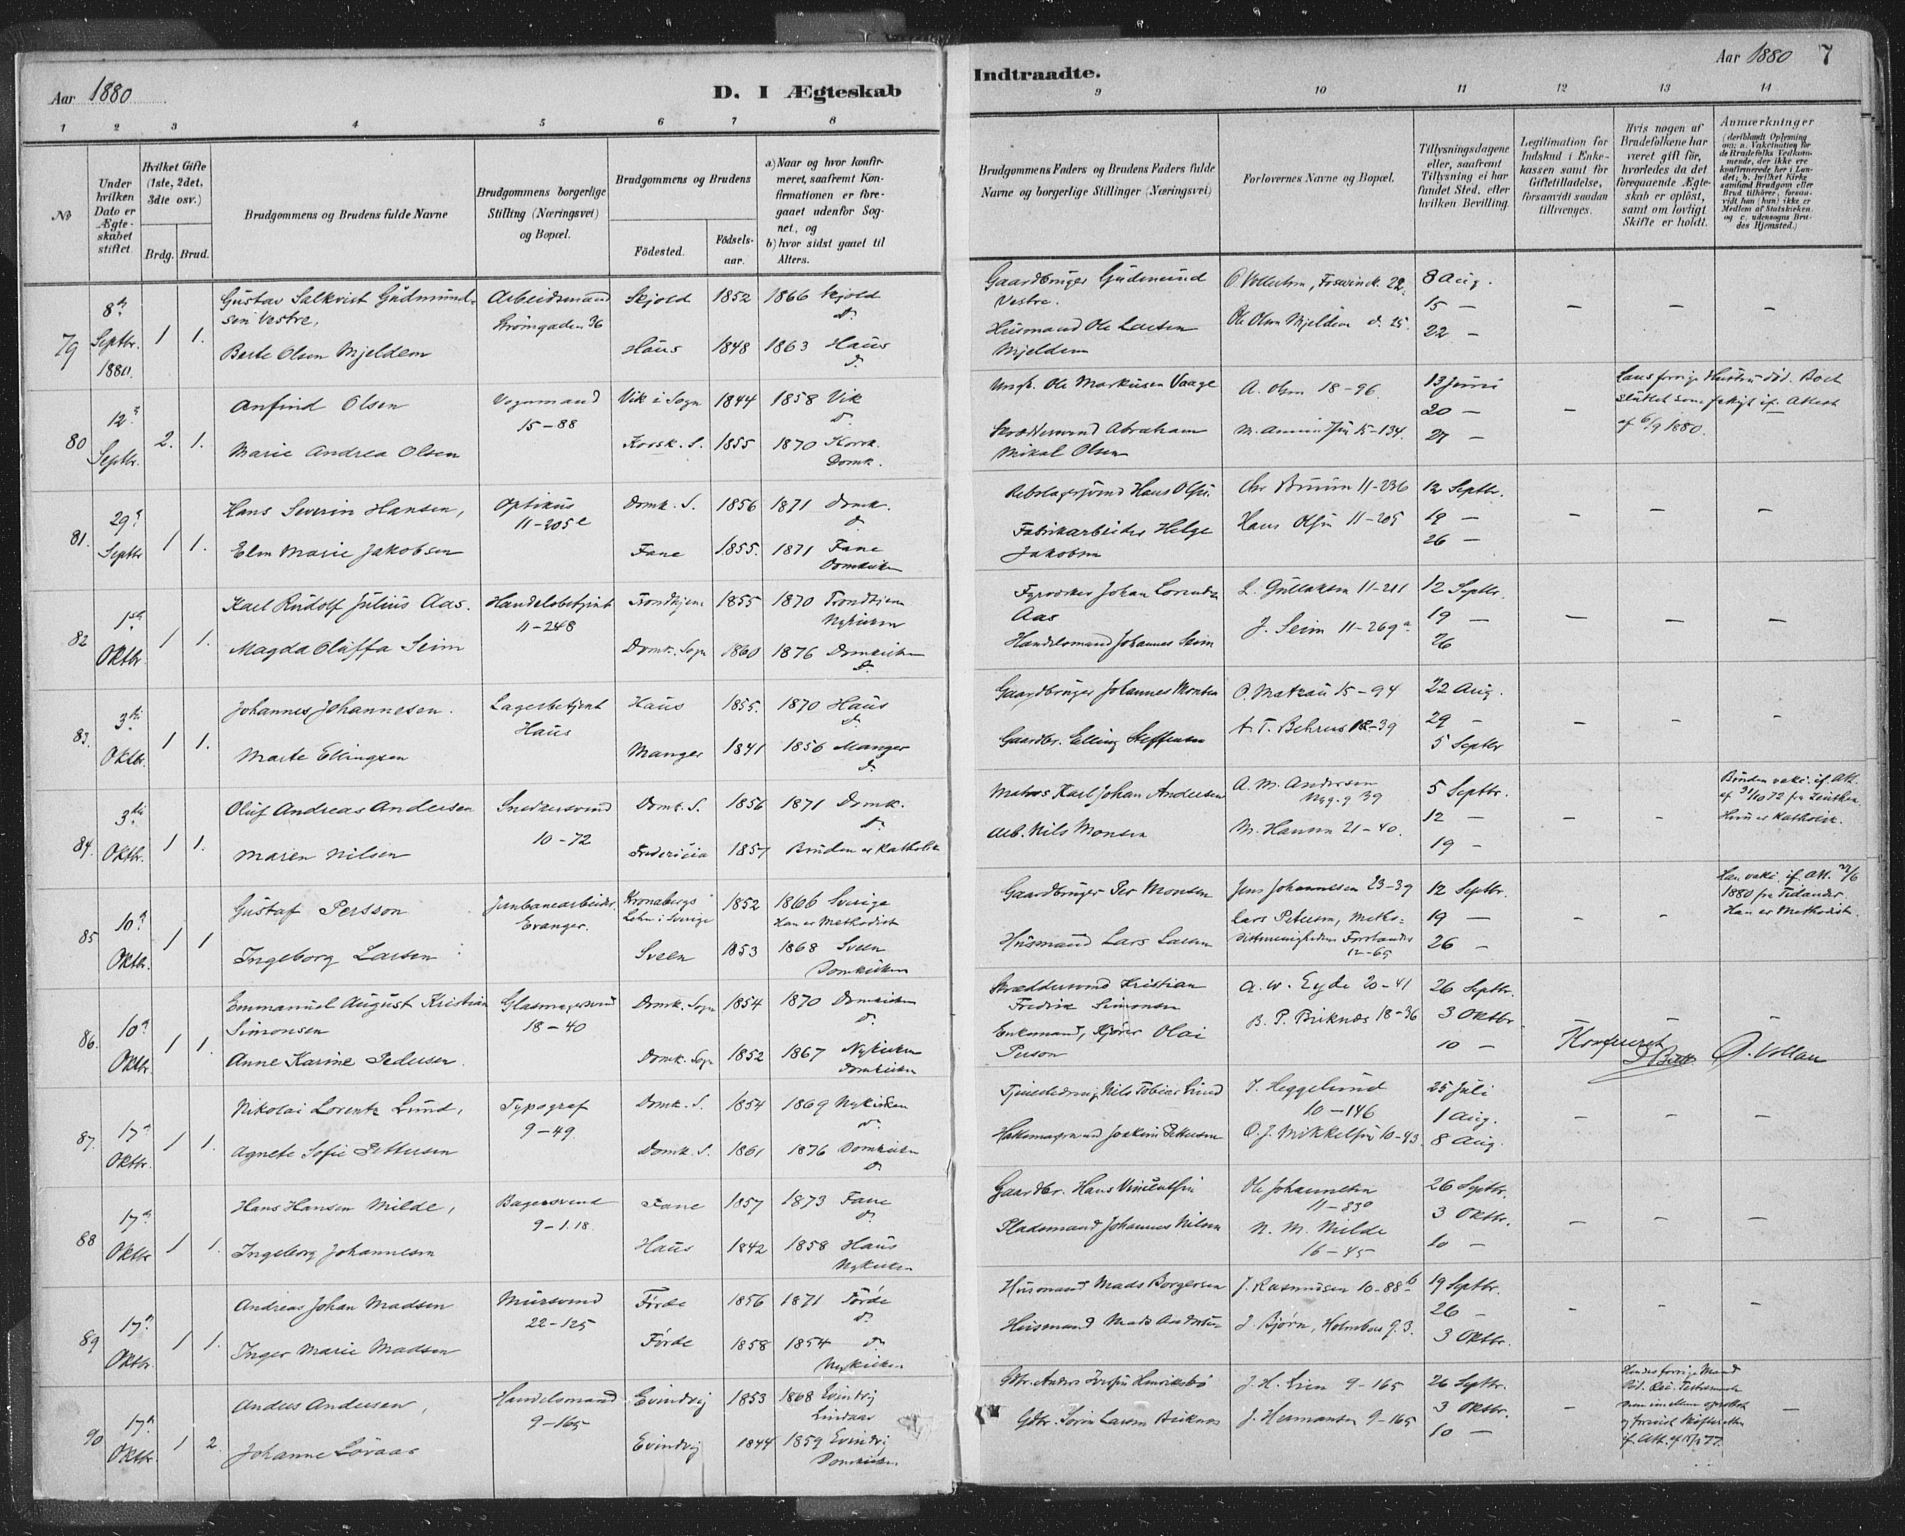 Aar 1880
D. I Ægteskab
Indtraadte.
Aar 1880 7
1 2 3 4 5 6 7 8 9 10 11 12 13 14
No
Under hvilken Dato er Ægteskabet stiftet.
Hvilket Gifte (1ste, 2det, 3die osv.)
Brdg. Brud.
Brudgommens og Brudens fulde Navne
Brudgommens borgerlige Stilling (Næringsvei) og Bopæl.
Brudgommens og Brudens
Födested. Födselsaar.
a) Naar og hvor konfirmeret, saafremt Konfirmationen er foregaaet udenfor Sognet, og
b) hvor sidst gaaet til Alters.
Brudgommens Faders og Brudens Faders fulde Navne og borgerlige Stillinger (Næringsvei)
Forlovernes Navne og Bopæl.
Tillysningsdagene eller, saafremt Tillysning ei har fundet Sted, efter hvilken Bevilling.
Legitimation for Indskud i Enkekassen samt for Giftetilladelse, forsaavidt saadan tiltrænges.
Hvis nogen af Brudefolkene har været gift för, hvorledes da det foregaaende Ægteskab er oplöst, samt om lovligt Skifte er holdt.
Anmærkninger
79 8de Septbr. 1880. 1 1.
Gustav Salkvist Gudmundsen Vestre. Arbeidsmand Strömgaden 36 Skjold 1852 1866 Skjold do.
Berte Olsen Mjeldem Haus 1848 1863 Haus do.
Gaardbruger Gudmund Vestre.
Husmand Ole Larsen Mjeldem
Ole Olsen Mjeldem d. 25.
8 Aug. 15 — 22 —
80 12te Septbr. 2. 1.
Anfind Olsen Vognmand 15-88 Vik i Sogn 1844 1858 Vik do.
Marie Andrea Olsen Korsk. S. 1855 1870 Korsk. Domk.
Ole Markusen Vaage
Skræddersvend Abraham Mikal Olsen
A. Olsen 18-96.
13 Juni 20 — 27 —
Hans forrige Hustru död. Boet sluttet som falligt if. Attest af 6/9 1880.
81. 29de Septbr 1 1.
Hans Severin Hansen, Optikus 11-205e Domk. S. 1856 1871 Domk. do.
Elen Marie Jakobsen Fane 1855. 1871 Fane Domkirken
Rebslagersvend Hans Olsen.
Fabrikarbeider Helge Jakobsen
Chr Bruun 11-236
Hans Olsen 11-205
12 Septbr. 19 — 26 —
82 1ste Oktbr. 1 1.
Karl Rudolf Julius Aas. Handelsbetjent 11-248 Trondhjem 1855 1870 Trondhjem Nykirken
Magda Oluffa Seim Domk. Sogn 1860 1876 Domkirken do.
Fyrvogter Johan Lorentz Aas
Handelsmand Johannes Seim
L. Gullaksen 11-211
J. Seim 11-269a
12 Septbr. 19 — 26
83. 3die Oktbr. 1 1.
Johannes Johannesen. Lagerbetjent Haus Haus 1855. 1870 Haus do.
Marte Ellingsen Manger 1841 1856 Manger do.
Gaardbruger Johannes Monsen
Gaardbr. Elling Steffensen
O. Matzau 15-94
A. T. Behrens 18-39
22 Aug. 29 — 5 Septbr
84. 3die Oktbr. 1 1.
Oluf Andreas Andersen Snedkersvend 10-72 Domk. S. 1856 1871 Domk. do.
Maren Nilsen Fredericia 1857 Bruden er Katholik
Matros Karl Johan Andersen
Arb. Nils Monsen
A. M. Andersen Nyg. 9 39
M. Hansen 21-40.
5 Septbr. 12 — 19 —
Bruden vaki. if. Att. af 31/10 72 fra
Hun er Katholik.
85 10de Oktbr. 1 1
Gustaf Persson Jernbanearbeider Evanger. Kronebergs Lehn i Sverige 1852 1866 Sverige Han er Methodist
Ingeborg Larsen Sveen 1853 1868 Sveen Domkirken
Gaardbruger Per Monsen
Husmand Lars Larsen
Jens Johannesen 23-39
Lars Petersen, Methodistmenighedens Forstander 12-65
12 Septbr. 19 — 26 —
Han vaki. if. Att. 22/6 1880 fra Tidander. Han er Methodist.
86. 10de Oktbr. 1 1.
Emmanuel August Kristian Simonsen Glasmagersvend 18-40 Domk. Sogn 1854 1870 Domkirken do.
Anne Karine Pedersen. Domk. Sogn 1852 1867 Nykirken Domkirken
Skræddersvend Kristian Fredrik Simonsen
Enkemand, Kjörer Olai Person
A. W. Eyde 20-41
B. P. Briknæs 18-36
26 Septbr. 3 Oktbr. 10 —
Konfereret O. Vollan
87. 17de Oktbr. 1 1.
Nikolai Lorentz Lund, Typograf 9-49 Domk. S. 1854 1869 Nykirken do.
Agnete Sofie Pettersen Domk. S. 1861 1876 Domkirken do.
Nils Tobias Lund
Joakim Pettersen
J. Heggelund 10-146
O. J. Mikkelsen 10-43
25 Juli 1 Aug. 8 Aug.
88 17de Oktbr 1 1.
Hans Hansen Milde, Bagersvend 9-118. Fane 1857 1873 Fane do.
Ingeborg Johannesen Haus 1842 1858 Haus Nykirken
Gaardbr. Hans Vincentsen
Pladsmand Johannes Nilsen
Ole Johannesen 11-830
N. M. Milde 16-45
26 Septbr. 3 Oktbr. 10 —
89 17de Oktbr. 1 1.
Andreas Johan Madsen Mursvend 22-125 Förde 1856 1871 Förde do.
Inger Marie Madsen Förde 1858 1854 do. Nykirken
Husmand Mads Borgersen
Husmand Mads
J. Rasmusen 10-88b
J. Bjørn, Holmboe g. 3.
19 Septbr. 26 — 3 Oktbr.
90 17de Oktbr. 1 2.
Anders Andersen, Handelsmand 9-165 Evindvig 1853 1868 Evindvig Lindaas
Johanne Løvaas Evindvig 1844 1859 Evindvig Domkirken
Gbr. Anders Henriksbö
Gbr. Sören Larsen Briknæs
J. H. Lien 9-165
J. Hermansen 9-165
26 Septbr. 3 Oktbr. 10 —
Hendes forrige Mand död.